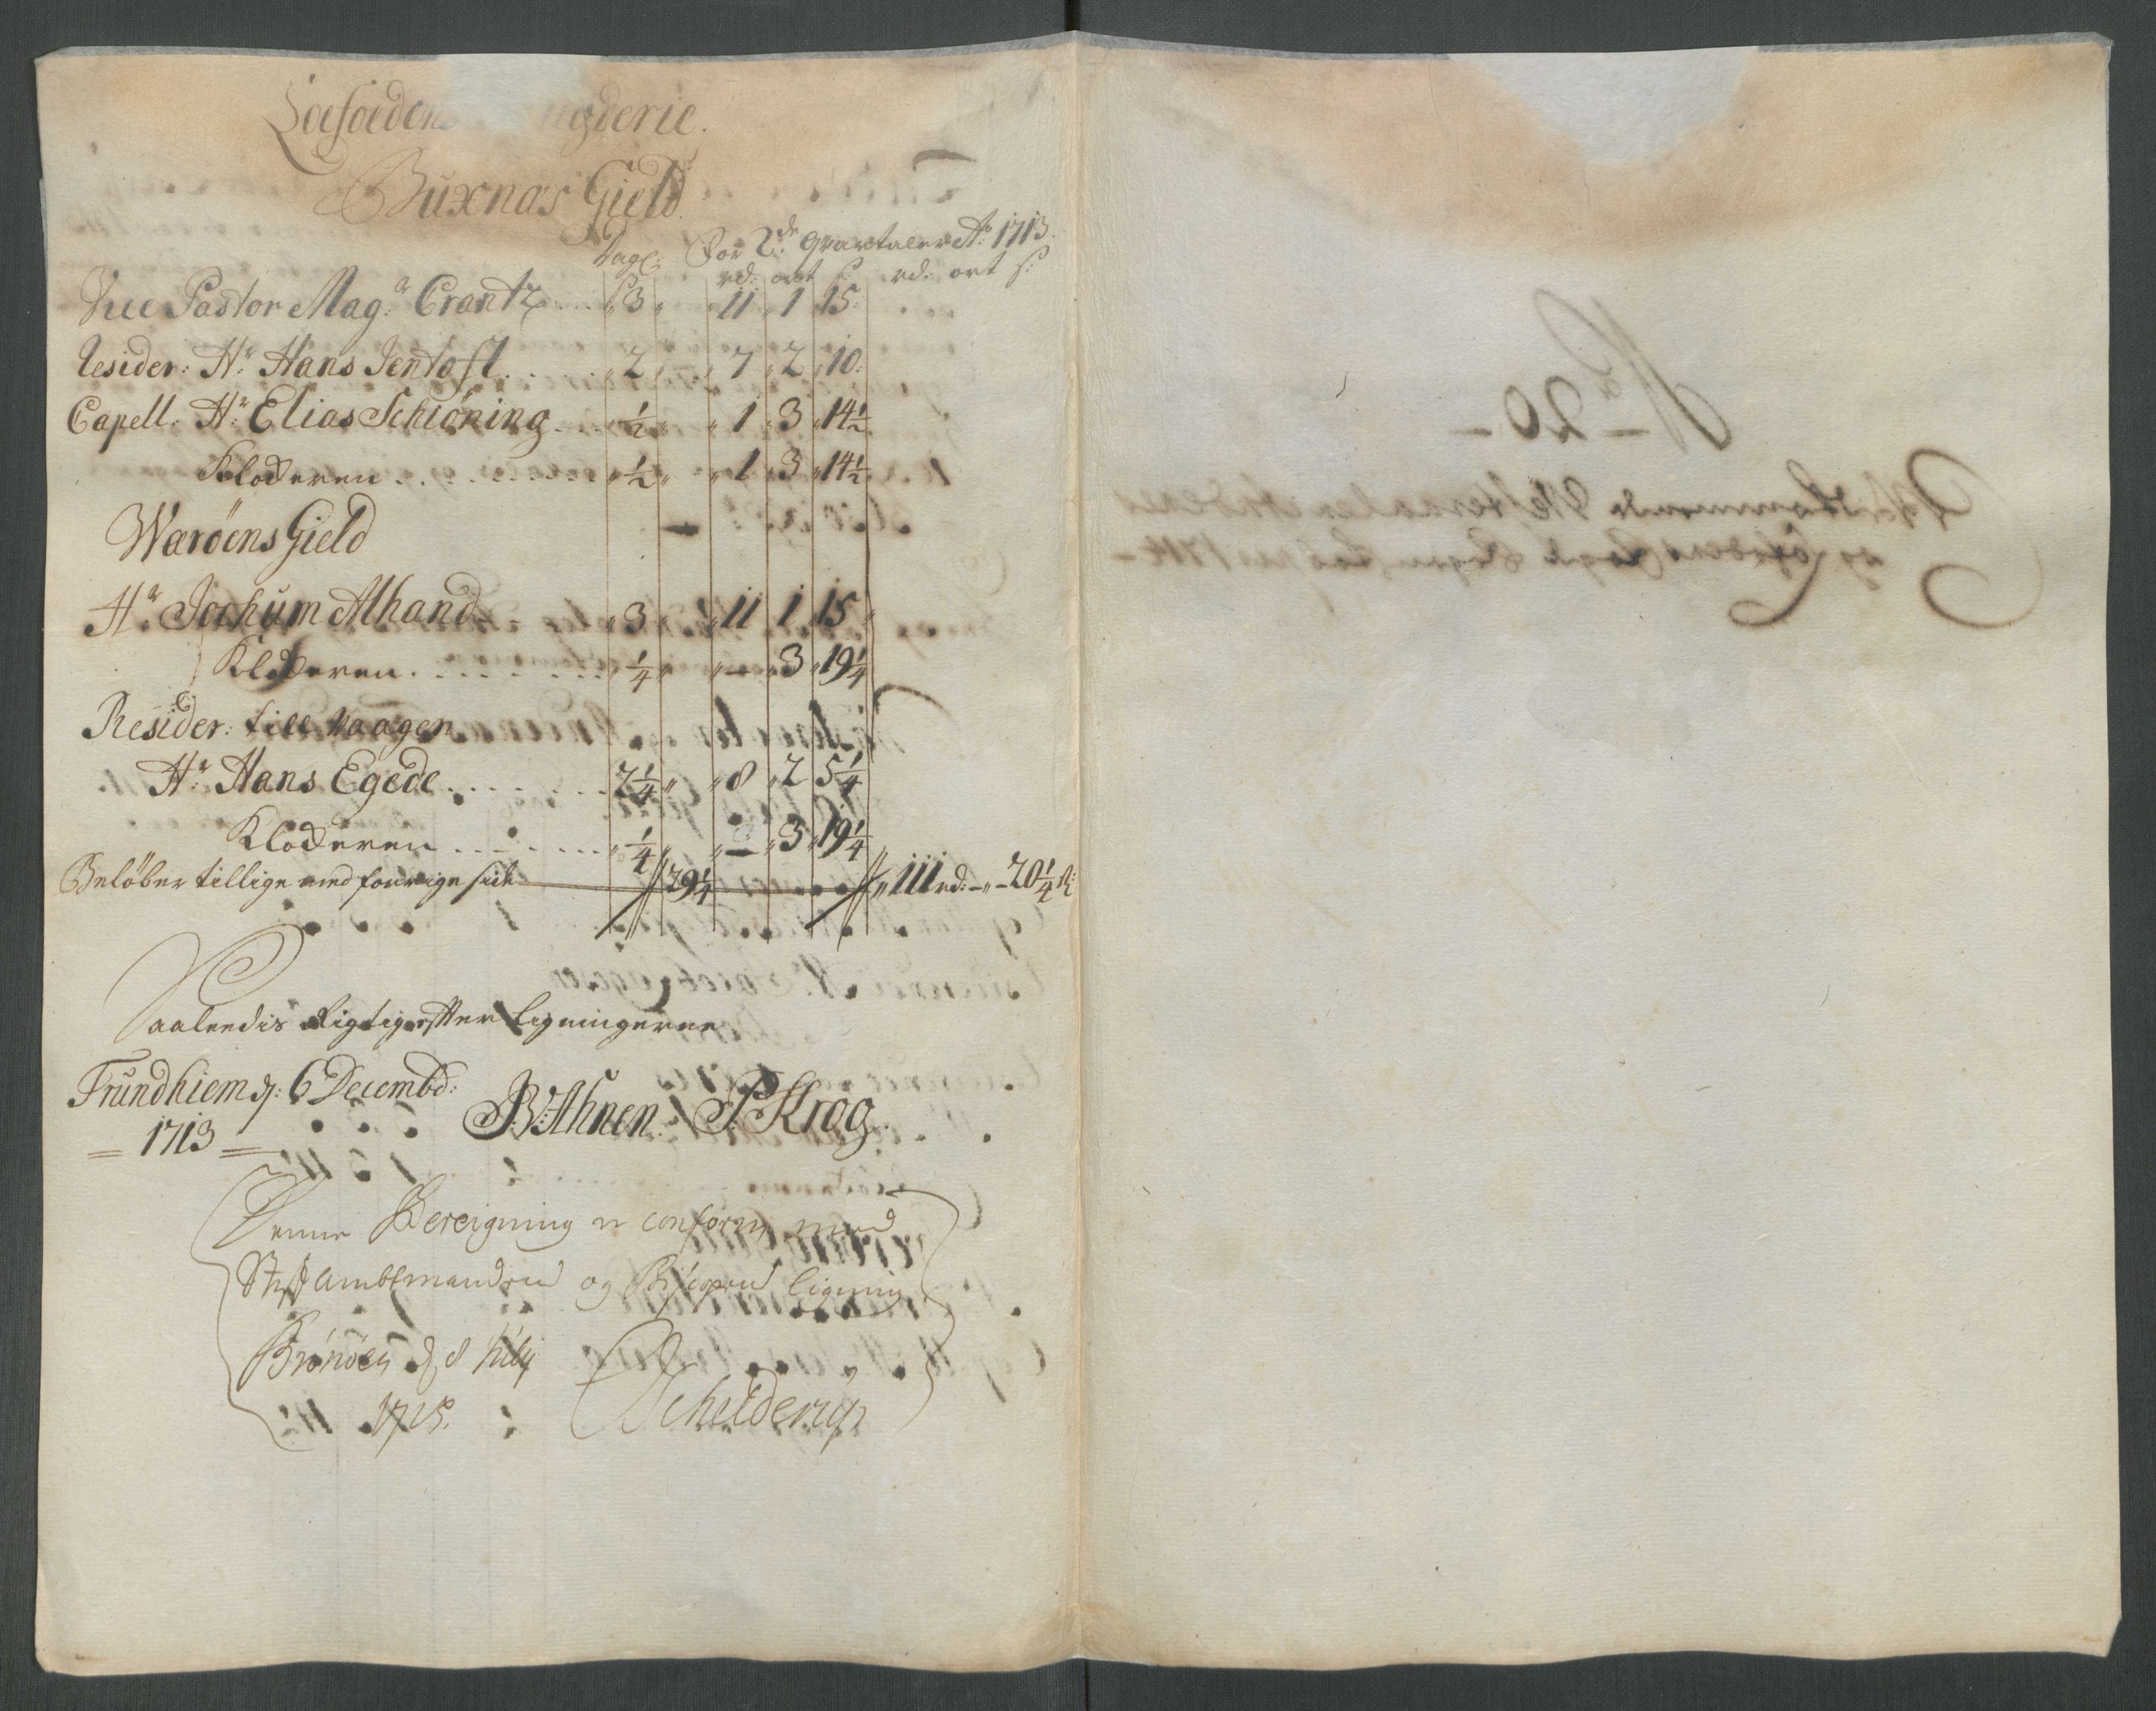 Loefoeden ugderie.
Buxnæs Gield.
Vogl: For 2de Qvartaler Ao 1713.
rd: ort s: rd: ort s:
Vice Pastor Magr Crantz .... 3 11 1 15
Resider: Hr Hans Jentoft .... 2 7 2 10
Capell: Hr Elias Schiöning .. ½ 1 3 14½
Klocheren ........ ½ 1 3 14½
Waröens Gield —
Hr Jochum Alhand 3 11 1 15
Klocheren ........ ¼ — 3 19¼
Resider: till Waagen
Hr Hans Egede ....... 2¼ 8 2 5¼
Klocheren ....... ¼ — 3 19¼
Belöber tillige med forrige side 29¼ 111 rd: — „ — 20¼ s:
Saaleedis Rigtig efter Ligningerne
Trundhiem d: 6 Decembd:
= 1713 =
B.V: Ahnen. P Krog.
Denne Bereigning er conform med
Stiftambtmandens og Bispens ligning
Brönöen d 8 July
1715.
Schelderup
No 20 -